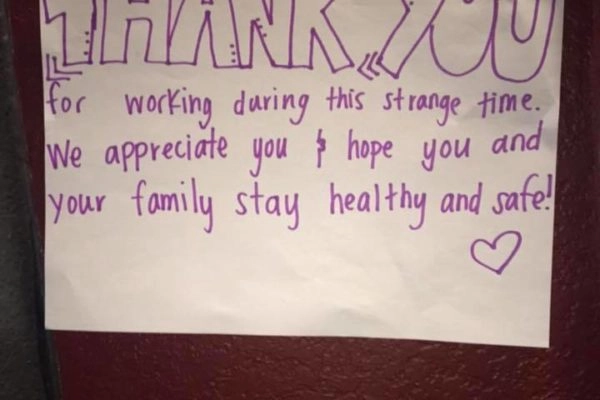 THANK YOU
for working during this strange time.
We appreciate you & hope you and
your family stay healthy and safe!